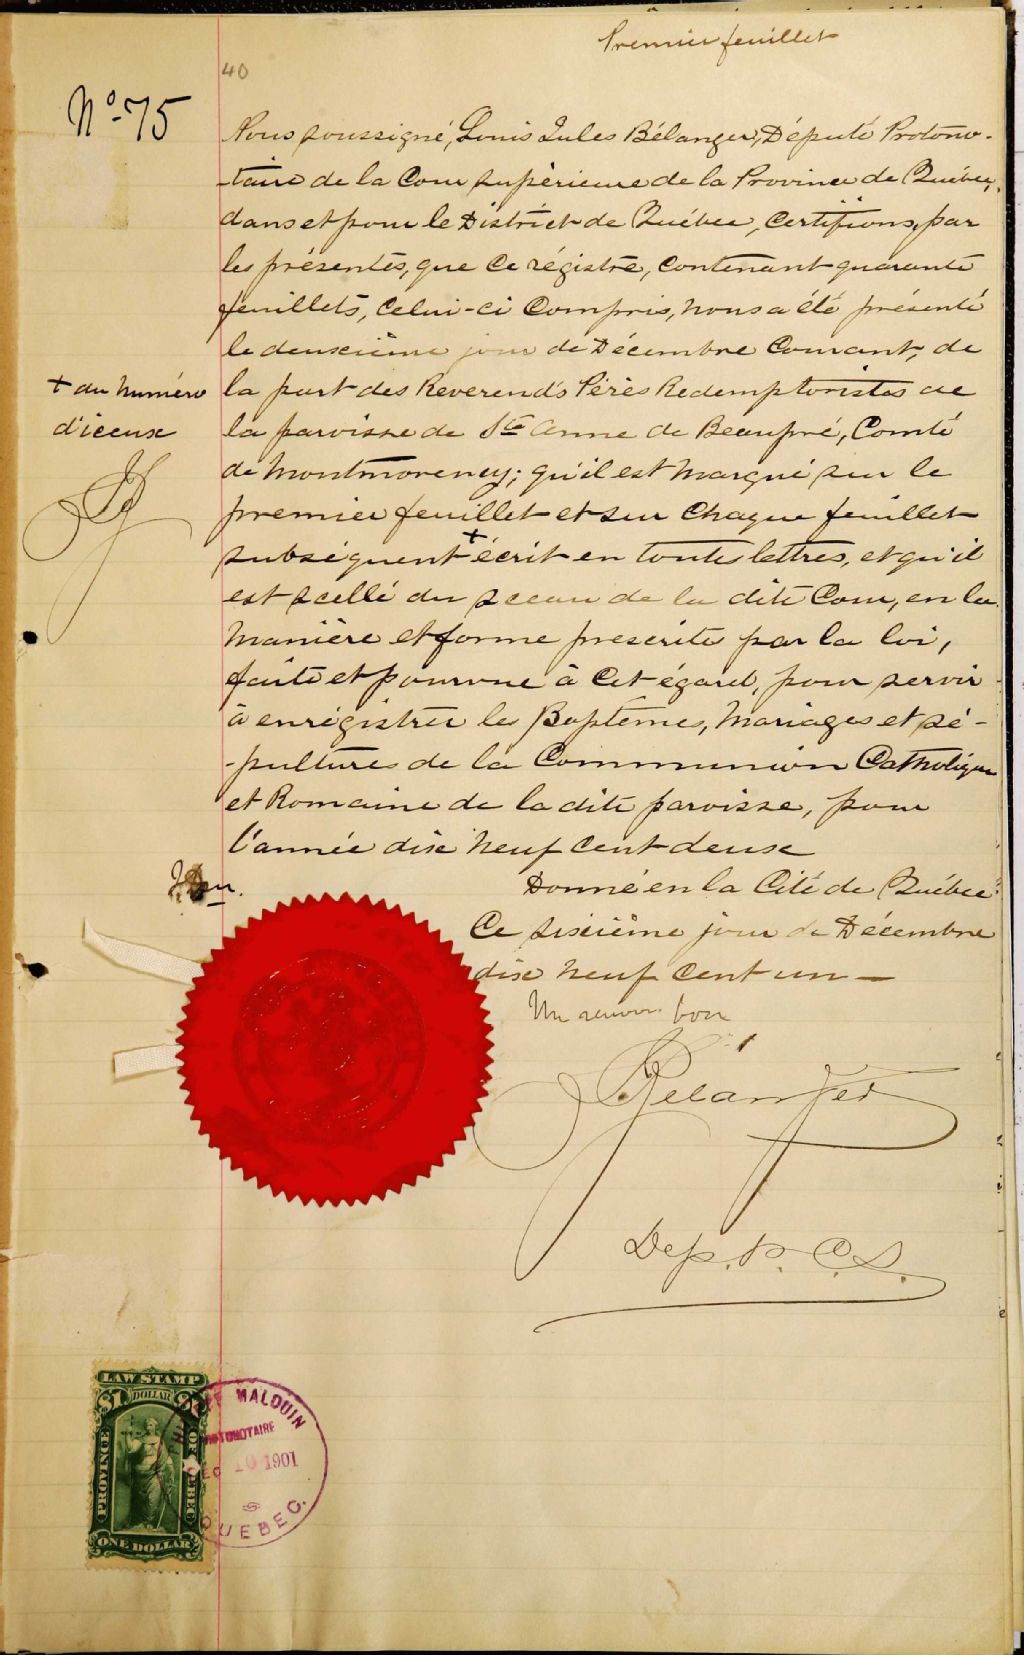 Premier feuillet
40
No-75
Nous soussigné, Louis Jules Bélanger, Député Protono-
-taire de la Cour Supérieure de la Province de Québec,
dans et pour le District de Québec, Certifions, par
les présentes, que Ce régistre, Contenant quarante
feuillets, Celui-ci Compris, nous a été présenté
le deuxième jour de Décembre Courant, de
la part des Reverends Pères Redemptoristes de
la paroisse de Ste Anne de Beaupré, Comté
de Montmorency; qu'il est marqué sur le
premier feuillet et sur Chaque feuillet
subséquent + écrit en toutes lettres, et qu'il
+ du numéro
d'iceux
est scellé du sceau de la dite Cour, en la
manière et forme prescrite par la loi,
faite et pourvue à Cet égard, pour servir
à enrégistrer les Baptêmes, Mariages et sé-
-pultures de la Communion Catholique
et Romaine de la dite paroisse, pour
l'année dix neuf Cent deux
Donné en la Cité de Québec
Ce sixième jour de Décembre
dix neuf Cent un —
Un renvoi bon
Bélanger
Dep. P. C. S.
LAW STAMP
$1 DOLLAR
PROVINCE OF QUEBEC
ONE DOLLAR
MALOUIN
PROTONOTAIRE
DEC 10 1901
QUEBEC.